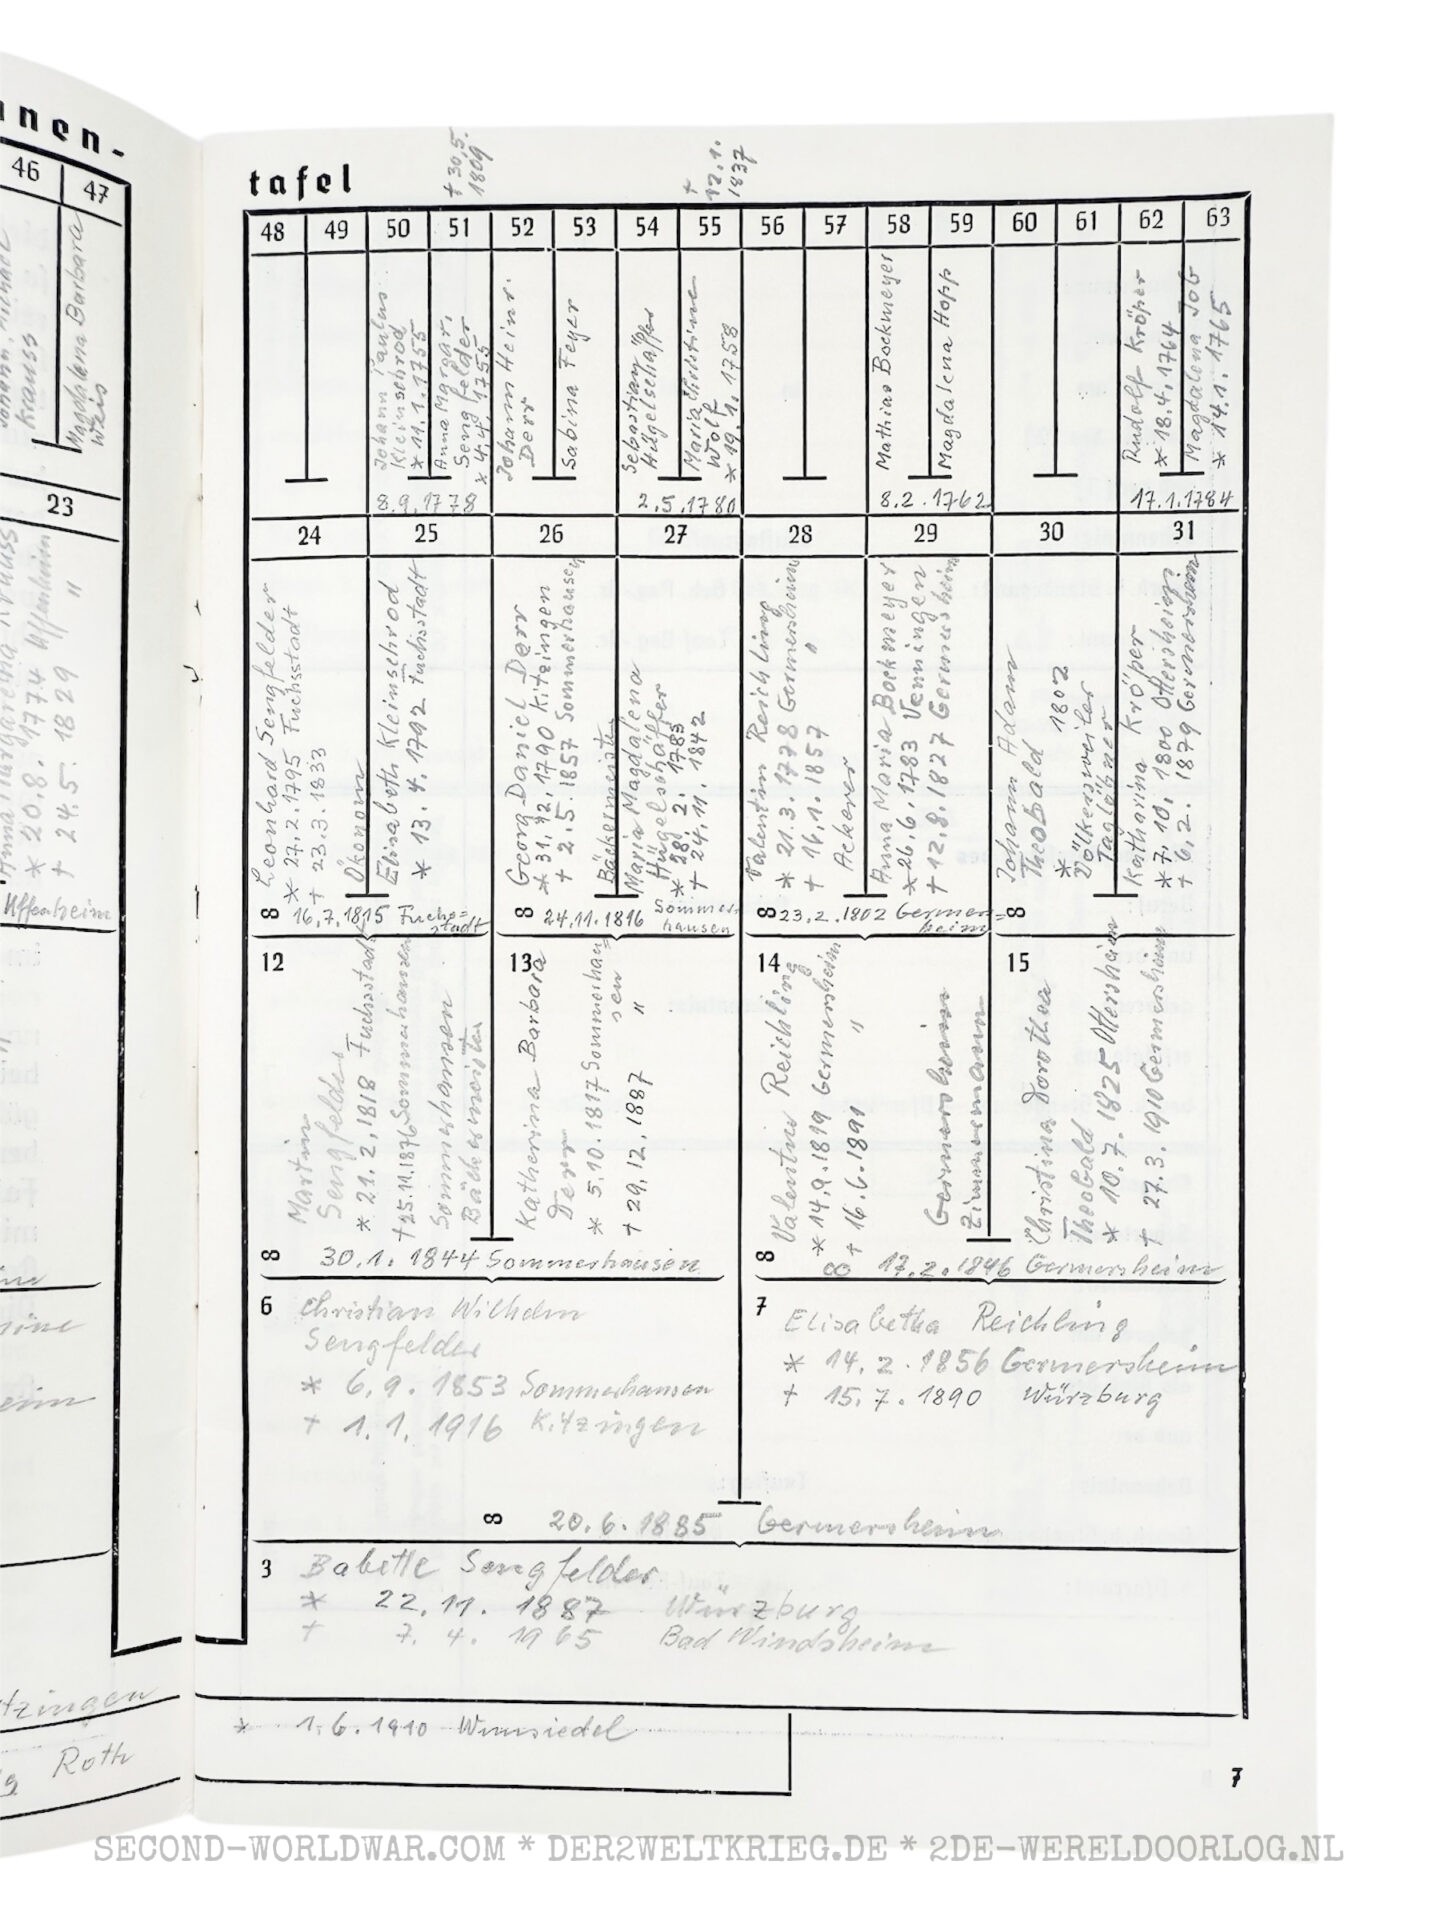 46
47
Krauss
Magdalena Barbara
Weis
23
Anna Margareta Krauss
* 20.8.1774 Uffenheim
† 24.5.1829 "
Uffenheim
tzingen
Roth
tafel
† 30.5.
1809
†
12.1.
1837
48 49 50 51 52 53 54 55 56 57 58 59 60 61 62 63
Johann Paulus
Kleinschrod
* 11.1.1755
Anna Margar.
Sengfelder
* 4.4.1755
8.9.1778
Johann Heinr.
Derr
Sabina Feyer
Sebastian
Hügelschäffer
Maria Christine
Wolf
* 19.1.1758
2.5.1780
Mathias Bockmeyer
Magdalena Hopp
8.2.1762
Rudolf Kröper
* 18.4.1764
Magdalena Job
* 14.1.1765
17.1.1784
24 25 26 27 28 29 30 31
Leonhard Sengfelder
* 27.2.1795 Fuchsstadt
† 23.3.1833
Ökonom
Elisabeth Kleinschrod
* 13.4.1792 Fuchsstadt
8 16.7.1815 Fuchs=
stadt
Georg Daniel Derr
* 31.12.1790 Kitzingen
† 2.5.1857 Sommerhausen
Bäckermeister
Maria Magdalena
Hügelschäffer
* 28.2.1783
† 24.11.1842
8 24.11.1816 Sommer-
hausen
Valentin Reichling
* 21.3.1778 Germersheim
† 16.1.1857 "
Ackerer
Anna Maria Bockmeyer
* 26.6.1783 Venningen
† 12.8.1827 Germersheim
8 23.2.1802 Germers=
heim
Johann Adam
Theobald
* 1802
Völkersweiler
Taglöhner
Katharina Kröper
* 7.10.1800 Ottersheim
† 6.2.1879 Germersheim
8
12
Martin
Sengfelder
* 21.2.1818 Fuchsstadt
† 25.11.1876 Sommerhausen
Sommerhausen
Bäckermeister
13
Katherina Barbara
Derr
* 5.10.1817 Sommerhau=
sen
† 29.12.1887 "
8 30.1.1844 Sommerhausen
14
Valentin Reichling
* 14.9.1819 Germersheim
† 16.6.1891 "
Germersheim
Zimmermann
15
Christina Dorothea
Theobald
* 10.7.1825 Ottersheim
† 27.3.1910 Germersheim
8 ∞ 17.2.1846 Germersheim
6 Christian Wilhelm
Sengfelder
* 6.9.1853 Sommerhausen
† 1.1.1916 Kitzingen
7 Elisabetha Reichling
* 14.2.1856 Germersheim
† 15.7.1890 Würzburg
8 20.6.1885 Germersheim
3 Babette Sengfelder
* 22.11.1887 Würzburg
† 7.4.1965 Bad Windsheim
* 1.6.1910 Wunsiedel
7
SECOND-WORLDWAR.COM * DER2WELTKRIEG.DE * 2DE-WERELDOORLOG.NL